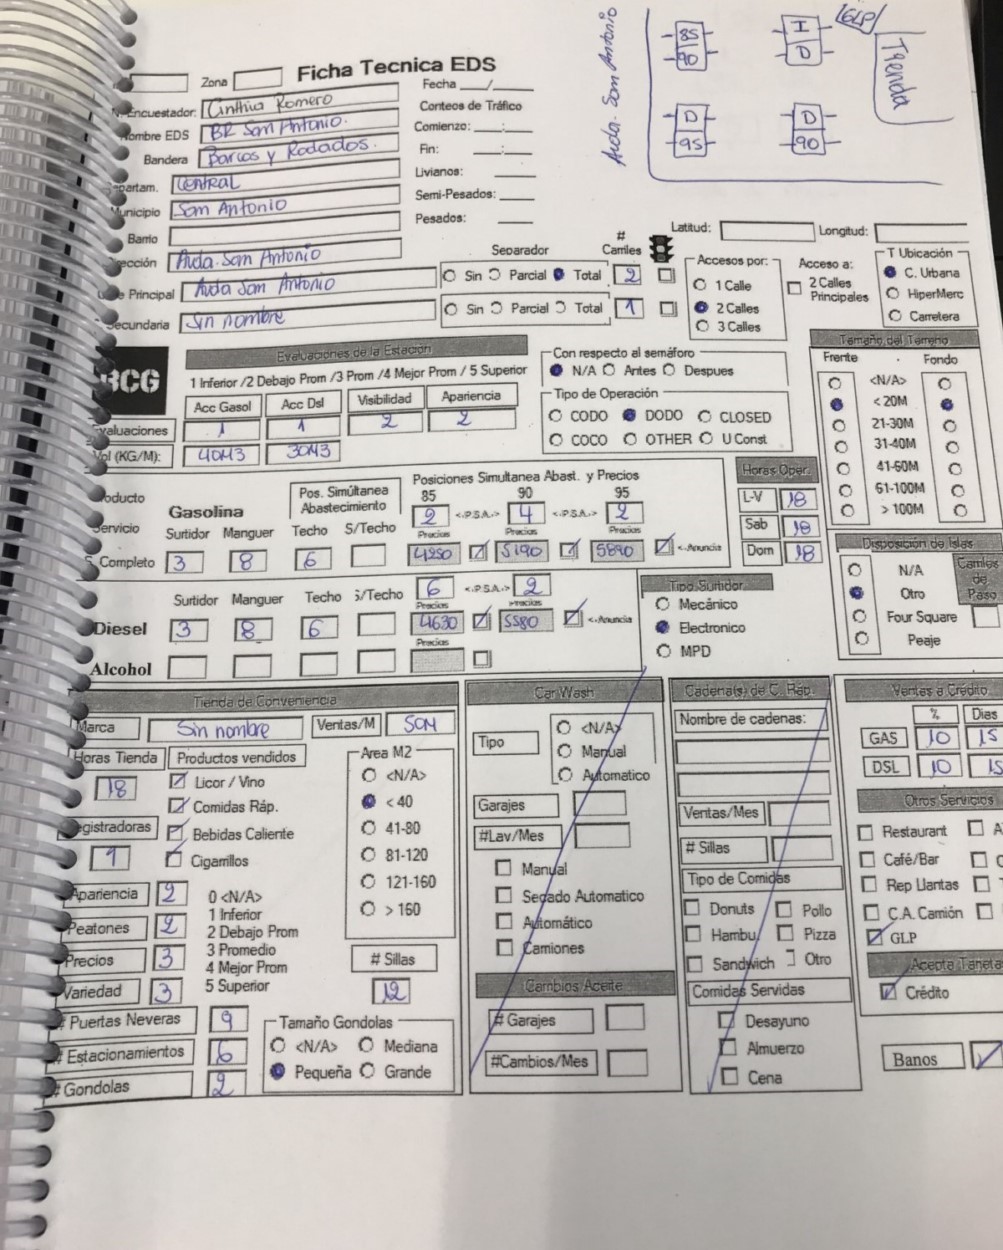 Avda. San Antonio
85
90
I
D
GLP
Tienda
D
95
D
90
Ficha Tecnica EDS
Zona
Encuestador: Cinthia Romero
Nombre EDS BR San Antonio.
Bandera Barcos y Rodados.
Departam. Central
Municipio San Antonio
Barrio
Dirección Avda. San Antonio
Principal Avda San Antonio
Secundaria Sin nombre
Fecha ___/___
Conteos de Tráfico
Comienzo: ___:___
Fin: ___:___
Livianos: ___
Semi-Pesados: ___
Pesados: ___
Latitud: Longitud:
Separador # Carriles
Sin Parcial Total 2
Sin Parcial Total 1
Accesos por:
1 Calle
2 Calles
3 Calles
Acceso a:
2 Calles
Principales
T Ubicación
C. Urbana
HiperMerc
Carretera
BCG
Evaluaciones de la Estación
1 Inferior /2 Debajo Prom /3 Prom /4 Mejor Prom / 5 Superior
Acc Gasol Acc Dsl Visibilidad Apariencia
Evaluaciones 1 1 2 2
Vol (KG/M): 40M3 30M3
Con respecto al semáforo
N/A Antes Despues
Tipo de Operación
CODO DODO CLOSED
COCO OTHER U Const
Tamaño del Terreno
Frente . Fondo
<N/A>
< 20M
21-30M
31-40M
41-60M
61-100M
> 100M
Producto
Servicio
Completo
Gasolina
Pos. Simúltanea
Abastecimiento
Surtidor Manguer Techo S/Techo
3 8 6
Posiciones Simultanea Abast. y Precios
85 90 95
2 <.P.S.A.> 4 <.P.S.A.> 2
Precios Precios Precios
4250 5190 5890 <-Anuncia
Horas Oper.
L-V 18
Sab 18
Dom 18
Surtidor Manguer Techo S/Techo
Diesel 3 8 6
6 <.P.S.A.> 2
Precios Precios
4630 5580 <-Anuncia
Precios
Alcohol
Tipo Surtidor
Mecánico
Electronico
MPD
Disposición de Islas
N/A
Otro
Four Square
Peaje
Carriles
de
Paso
Tienda de Conveniencia
Marca Sin nombre Ventas/M 50M
Horas Tienda
18
Registradoras
1
Productos vendidos
Licor / Vino
Comidas Ráp.
Bebidas Caliente
Cigarrillos
Area M2
<N/A>
< 40
41-80
81-120
121-160
> 160
Apariencia 2
Peatones 2
Precios 3
Variedad 3
0 <N/A>
1 Inferior
2 Debajo Prom
3 Promedio
4 Mejor Prom
5 Superior
# Sillas
12
# Puertas Neveras 9
# Estacionamientos 6
# Gondolas 2
Tamaño Gondolas
<N/A> Mediana
Pequeña Grande
Car Wash
Tipo
<N/A>
Manual
Automatico
Garajes
#Lav/Mes
Manual
Secado Automatico
Automático
Camiones
Cambios Aceite
# Garajes
#Cambios/Mes
Cadena(s) de C. Ráp.
Nombre de cadenas:
Ventas/Mes
# Sillas
Tipo de Comidas
Donuts Pollo
Hambu. Pizza
Sandwich Otro
Comidas Servidas
Desayuno
Almuerzo
Cena
Ventas a Crédito
% Dias
GAS 10 15
DSL 10 15
Otros Servicios
Restaurant
Café/Bar
Rep Llantas
C.A. Camión
GLP
Acepta Tarjeta
Crédito
Banos